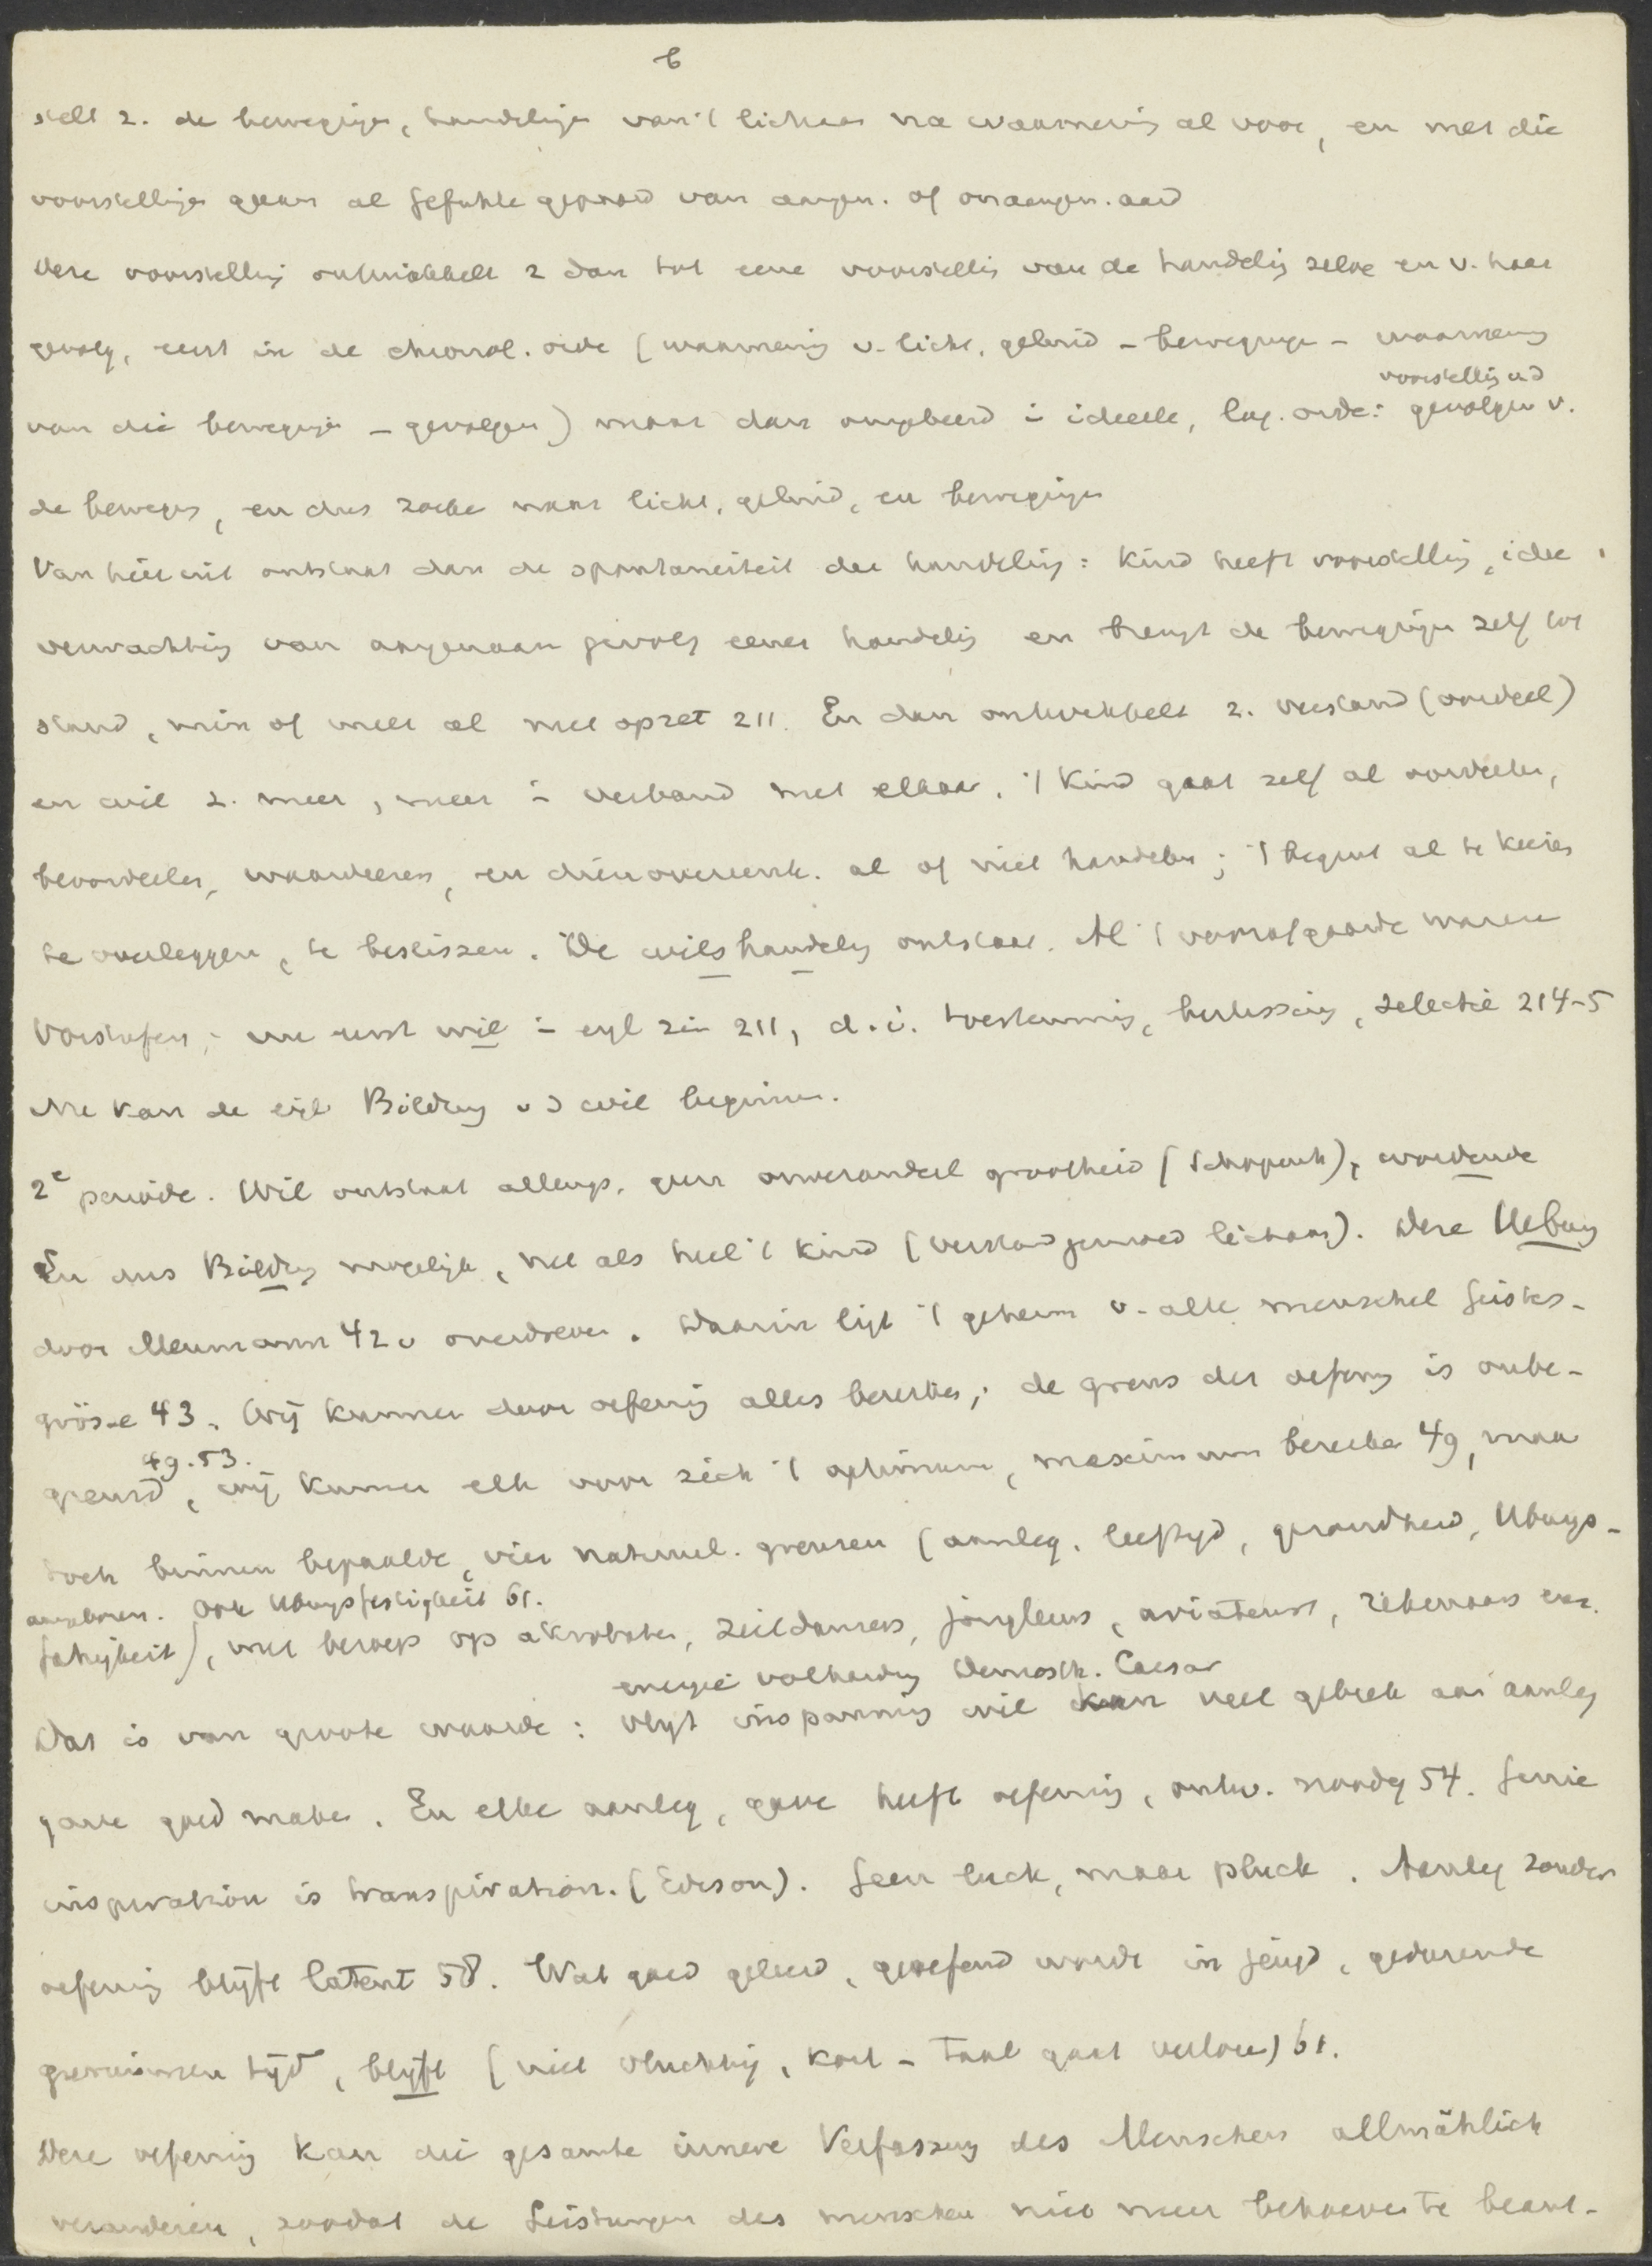 6
stelt z. de bewegingen, handelingen van 't lichaam na waarneming al voor, en met die
voorstellingen gaan al gefühle gepaard van aangen. of onaangen. aard
Deze voorstelling ontwikkelt z dan tot eene voorstelling van de handeling zelve en v. haar
gevolg, eerst in de chronol. orde (waarneming v. licht, geluid – bewegingen – waarneming
voorstelling v d
van die bewegingen – gevolgen) maar dan omgekeerd in ideeele, log. orde: gevolgen v.
de bewegg, en dus zoeken naar licht, geluid, en bewegingen
Van hier uit ontstaat dan de spontaneiteit der handeling: Kind heeft voorstelling, idee,
verwachting van aangenaam gevolg eener handeling en brengt de bewegingen zelf tot
stand, min of meer al met opzet 211. En dan ontwikkelt z. verstand (oordeel)
en wil z. meer, meer in verband met elkaar. 't Kind gaat zelf al oordeelen,
beoordeelen, waardeeren, en dienovereenk. al of niet handelen; 't begint al te kiezen
te overleggen, te beslissen. De wilshandeling ontstaat. Al 't voorafgaande waren
Vorstufen; nu eerst wil in eigl zin 211, d.i. toestemming, beslissing, selectie 214-5
Nu kan de eigl Bildung v d wil beginnen.
2e periode. Wil ontstaat allengs, geen onveranderl grootheid (Schopenh), wordende
En dus Bildung mogelijk, net als heel 't kind (verstand gemoed lichaam). Deze Uebung
door Meumann 42 v overdreven. Daarin ligt 't geheim v. alle menschel Geistes-
grösse 43. Wij kunnen door oefening alles bereiken; de grens der oefening is onbe-
49. 53.
grensd, wij kunnen elk voor zich 't optimum, maximum bereiken 49, maar
toch binnen bepaalde, natuurl. grenzen (aanleg, leeftijd, gezondheid, Übungs-
Ook Übungsfestigkeit 61.
fähigkeit), met beroep op akrobaten, zeildansers, jongleurs, aviateurs, rekenaars enz.
energie volharding Demosth. Caesar
Dat is van groote waarde: vlijt inspanning wil kan veel gebrek aan aanleg
gave goed maken. En elke aanleg, gave heeft oefening, ontw. noodig 54. Genie
inspiration is transpiration. (Edison). Geen luck, maar pluck. Aanleg zonder
oefening blijft latent 58. Wat goed geleerd, geoefend wordt in jeugd, gedurende
geruimen tijd, blijft (niet vluchtig, kort – taal gaat verloren) 61.
Deze oefening kan die gesamte innere Verfassung des Menschen allmählich
veranderen, zoodat de Leistungen des menschen niet meer behoeven te beant-